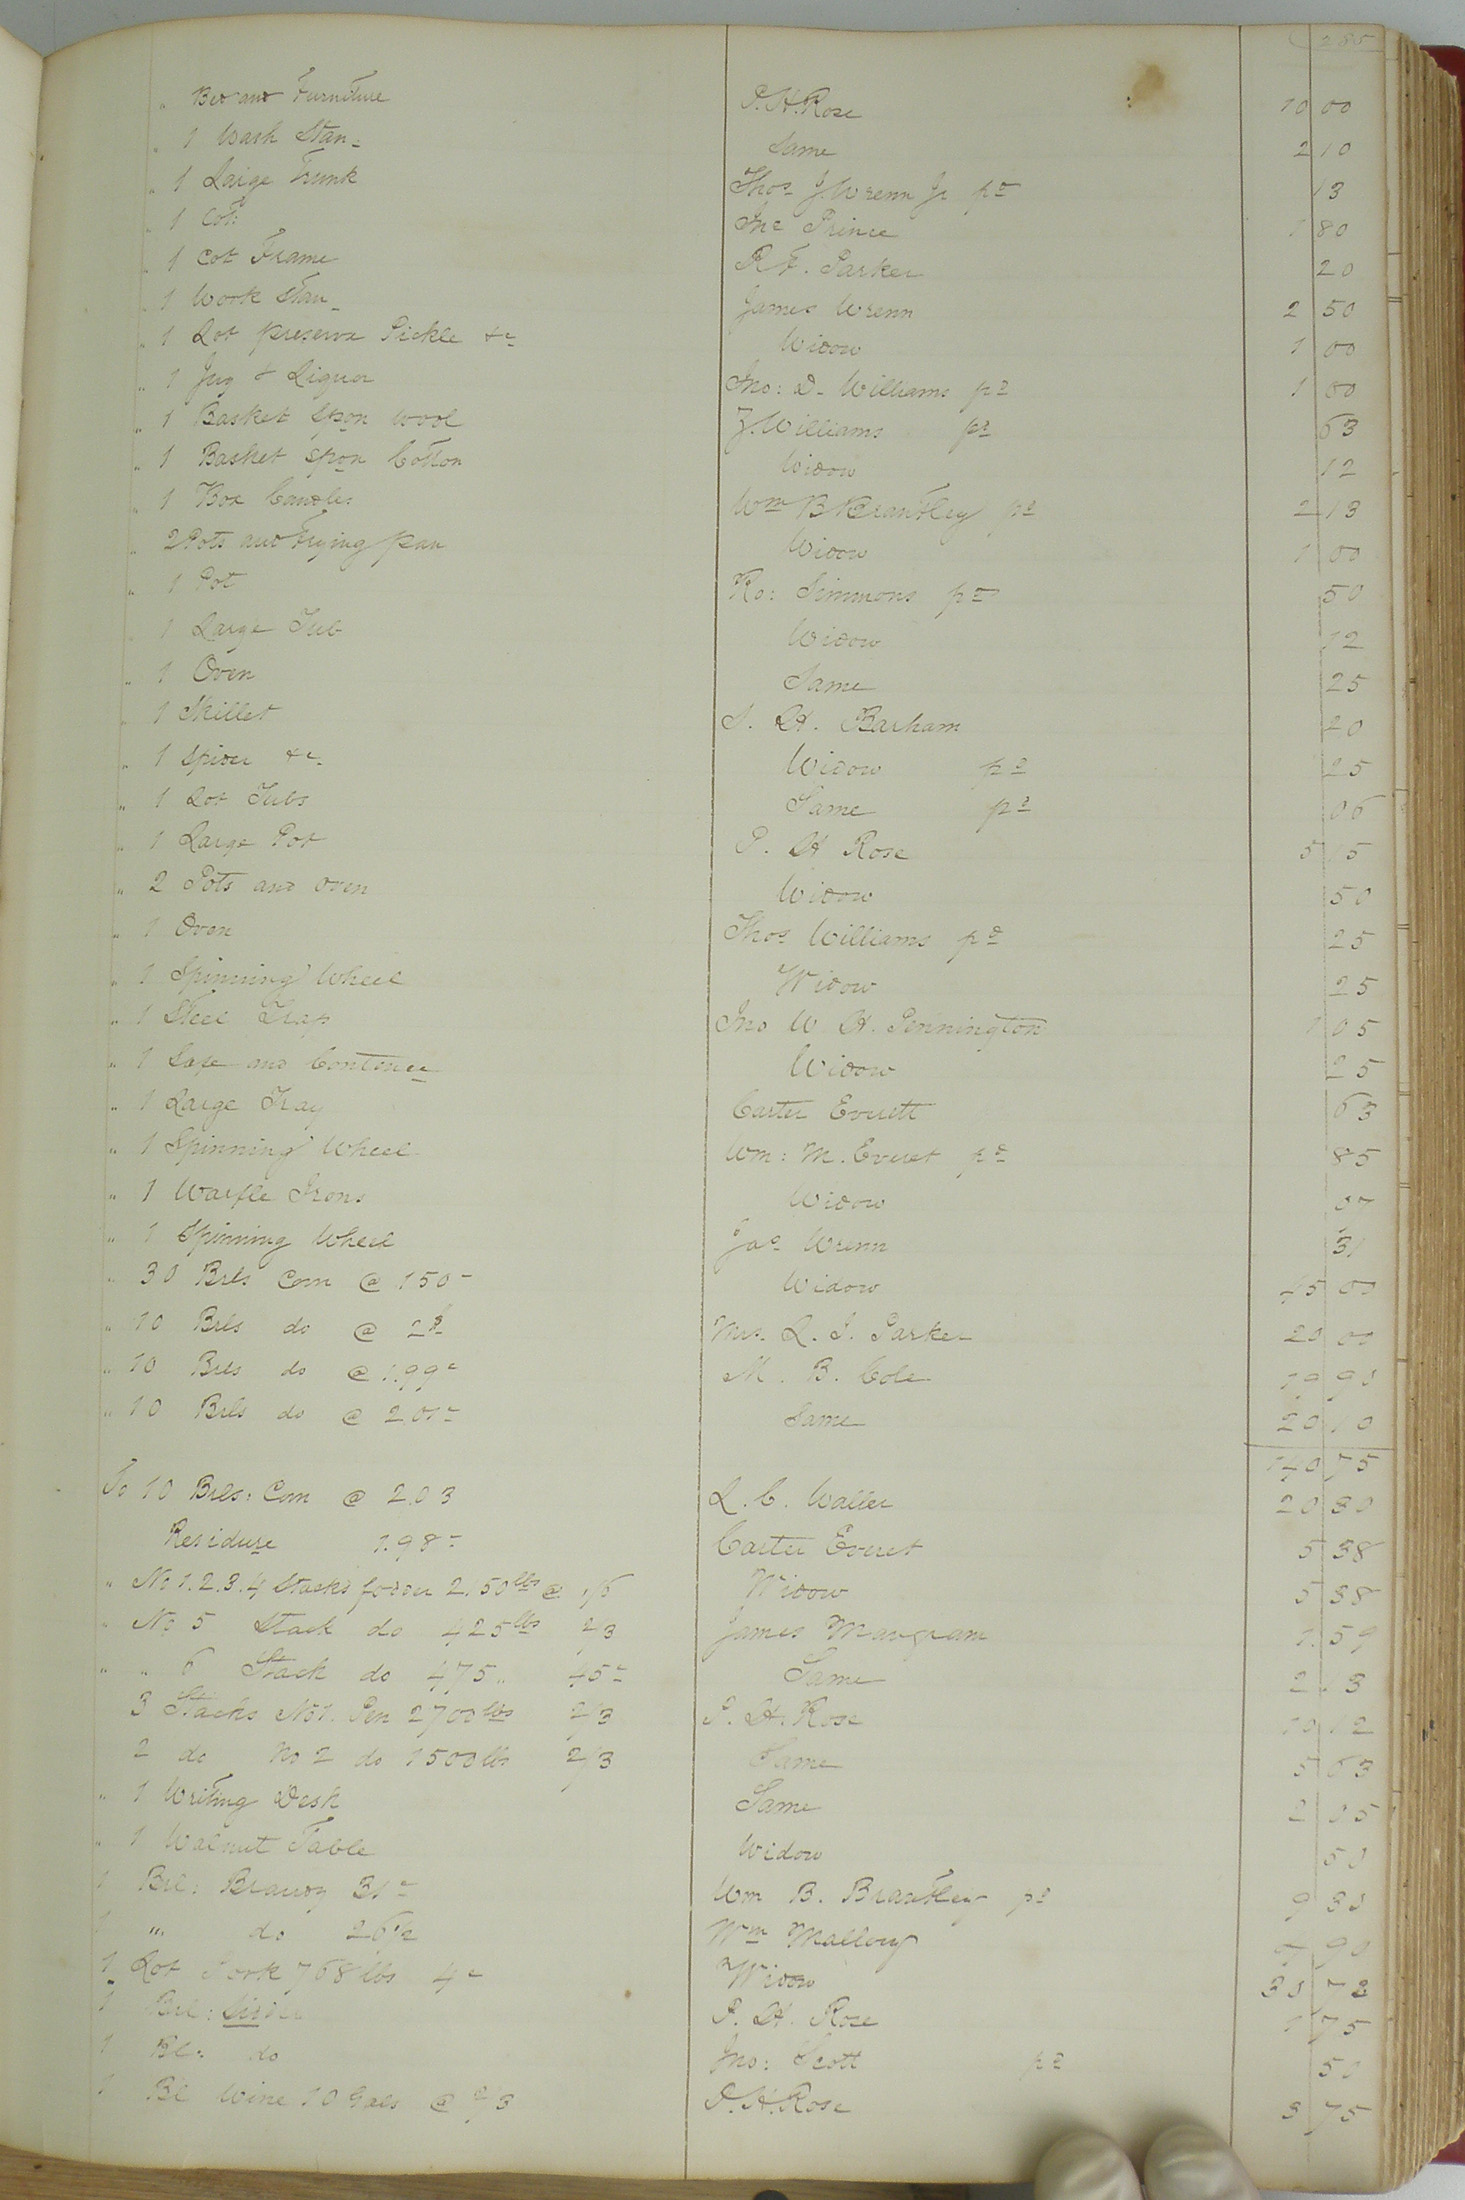 285
" Bed and Furniture P. H. Rose 10 00
" 1 Wash Stan_ Same 2 10
" 1 Large Trunk Thos J. Wrenn Jr pd 13
" 1 Cot Jno Prince 1 80
" 1 Cot Frame R F. Parker 20
" 1 Work Stan_ James Wrenn 2 50
" 1 Lot preserve Pickle &c Widow 1 00
" 1 Jug & Liquor Jno: D. Williams pd 1 00
" 1 Basket Spon wool J. Williams pd 63
" 1 Basket Spon Cotton Widow 12
" 1 Box Candles Wm B Brantley pd 2 13
" 2 Pots and Frying pan Widow 1 00
" 1 Pot Ro: Simmons pd 50
" 1 Large Tub Widow 12
" 1 Oven Same 25
" 1 Skillet S. H. Barham 20
" 1 Spider &c. Widow pd 25
" 1 Lot Tubs Same pd 06
" 1 Large Pot P. H Rose 5 15
" 2 Pots and oven Widow 50
" 1 Oven Thos Williams pd 25
" 1 Spinning Wheel Widow 25
" 1 Steel Trap Jno W. H. Pennington 1 05
" 1 Safe and Contence Widow 25
" 1 Large Tray Carter Everett 63
" 1 Spinning Wheel Wm: M. Everet pd 85
" 1 Waifle Irons Widow
" 1 Spinning Wheel Jas Wrenn 31
" 30 Brls Corn @ 150 Widow 45 00
" 10 Brls do @ 2$ Mrs. L. S. Parker 20 00
" 10 Brls do @ 1.99c M. B. Cole 19 90
" 10 Brls do @ 2.01c Same 20 10
140 75
To 10 Brls: Corn @ 2.03 L. C. Waller 20 30
Residuse 1.98c Carter Everet 5 38
" No 1.2.3.4 Stacks fodder 2.50 lbs @ 1/6 Widow 5 38
" No 5 Stack do 425 lbs 2/3 James Maugram 1.59
" " 6 Stack do 475 " 45c Same 2 13
3 Stacks No 1. Pen 2700 lbs 2/3 P. H. Rose 10 12
2 do No 2 do 1500 lbs 2/3 Same 5 63
" 1 Writing Desk Same 2 05
" 1 Walnut Table Widow 50
1 Brl: Brandy 31c Wm B. Brantley pd 9 30
1 " do 26½ Wm Mallory 90
1 Lot Pork 768 lbs 4c Widow 30 72
1 Brl: Cider P. H. Rose 1 75
1 Bl: do Jno: Scott pd 50
1 Bl Wine 10 Gals @ 2/3 P. H. Rose 3 75